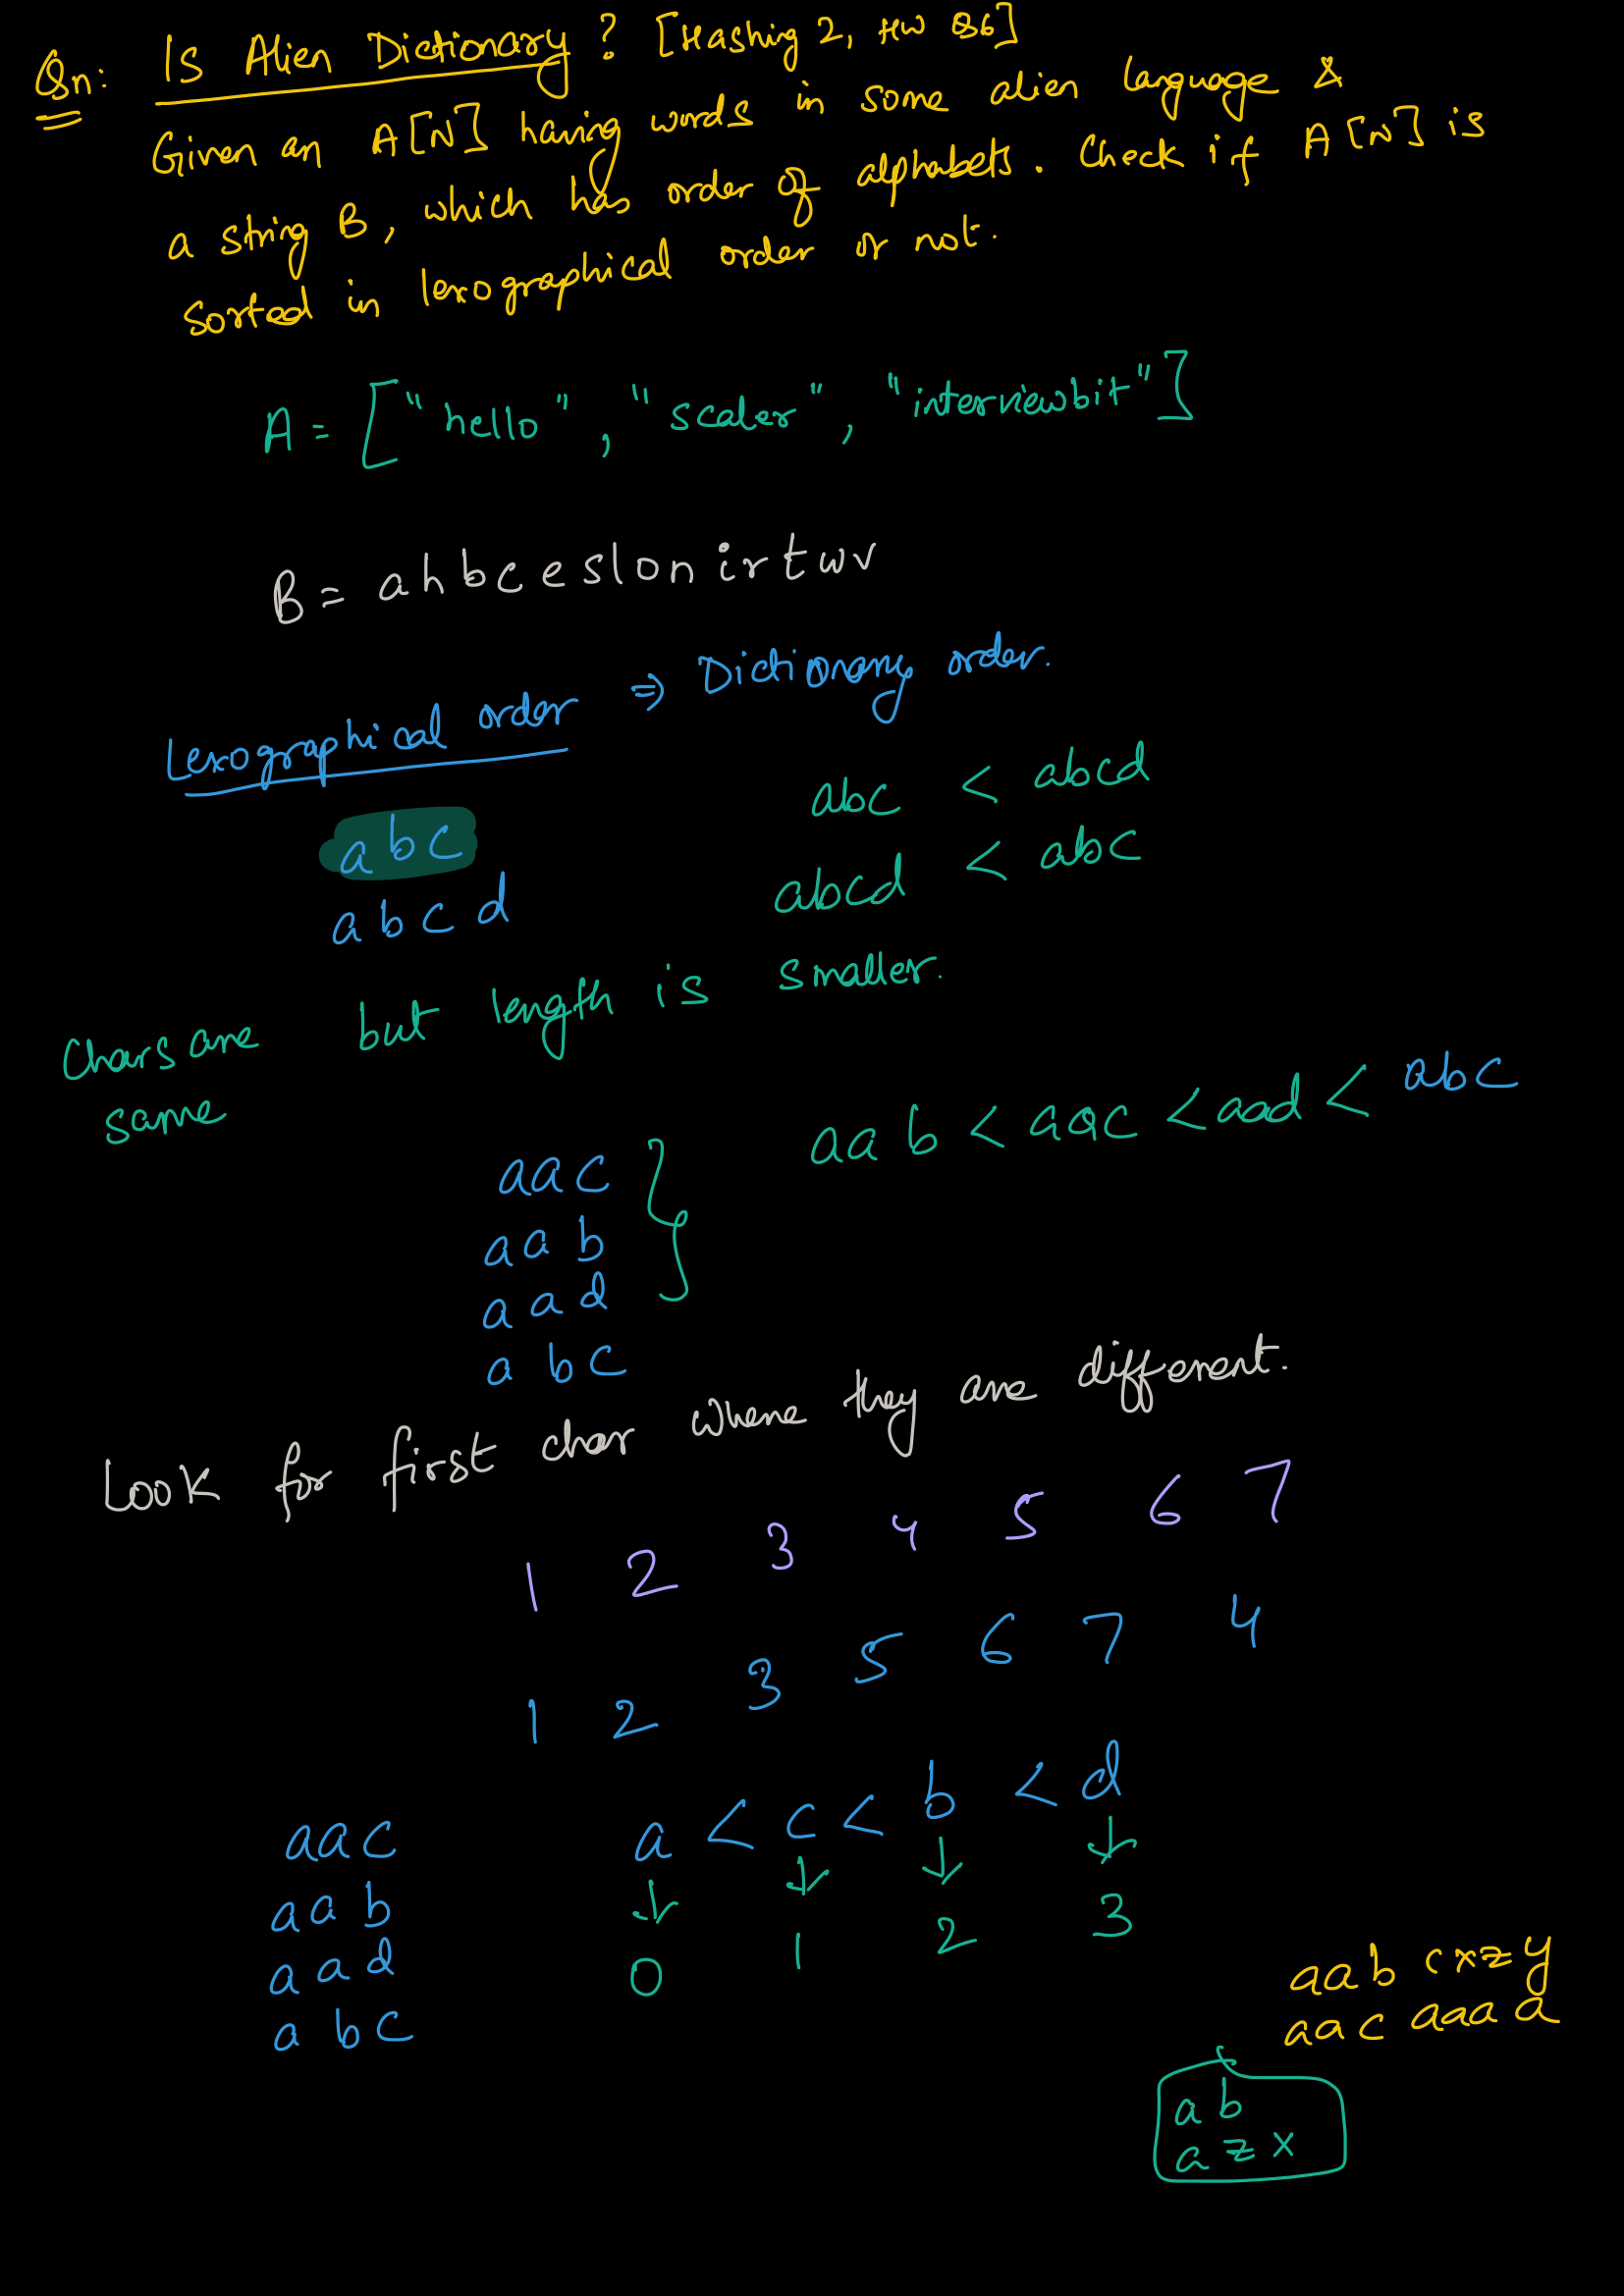 Qn: Is Alien Dictionary? [Hashing 2, HW Q6]
Given an A[N] having words in some alien language &
a string B, which has order of alphabets. Check if A[N] is
sorted in lexographical order or not.
A = ["hello", "scaler", "interviewbit"]
B = a h b c e s l o n i r t w v
Lexographical order ⇒ Dictionary order.
abc
abcd
abc < abcd
abcd < abc
Chars are same but length is smaller.
aac
aab
aad
abc
aab < aac < aad < abc
Look for first char where they are different.
1 2 3 4 5 6 7
1 2 3 5 6 7 4
aac
aab
aad
abc
a < c < b < d
↓ ↓ ↓ ↓
0 1 2 3
aab cxzy
aac aaaa
ab
azx